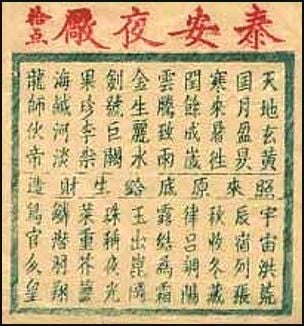 泰安夜廠
拾点
天地玄黃
囯月盈昃
寒來暑往
閏餘成歲
雲騰致雨
金生麗水
劍號巨闕
果珍李柰
海鹹河淡
龍師伙帝
照來原底給生財造
宇宙洪荒
辰宿列張
秋收冬藏
律呂調陽
露結為霜
玉出崑岡
珠稱夜光
菜重芥薑
鱗潛羽翔
鳥官久皇